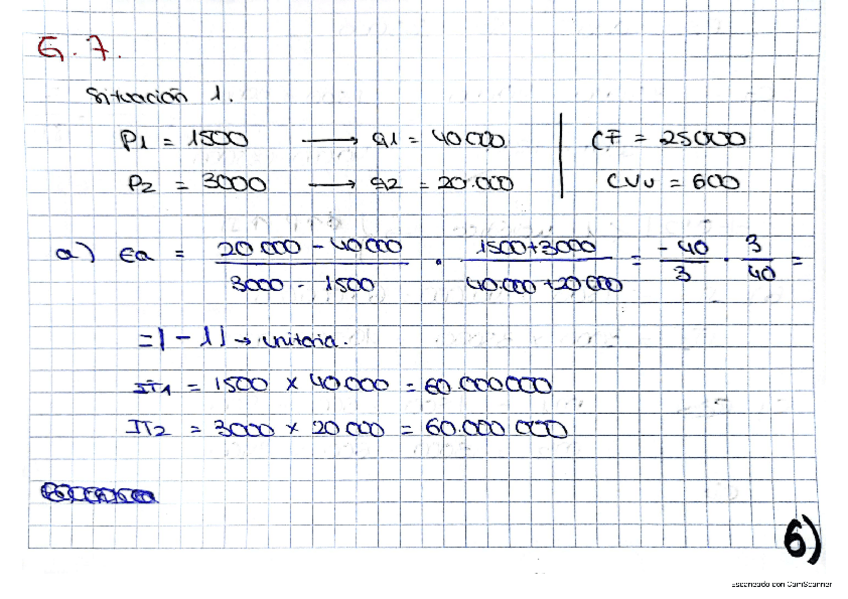 G. 7.
Situación 1.
P1 = 1500 → q1 = 40000 | CF = 25000
P2 = 3000 → q2 = 20.000 | CVu = 600
a) Ea = (20000 - 40000)/(3000 - 1500) · (1500+3000)/(40.000+20000) = -40/3 · 3/40 =
= |-1| → unitaria.
IT1 = 1500 x 40000 = 60.000000
IT2 = 3000 x 20000 = 60.000 000
6)
Escaneado con CamScanner